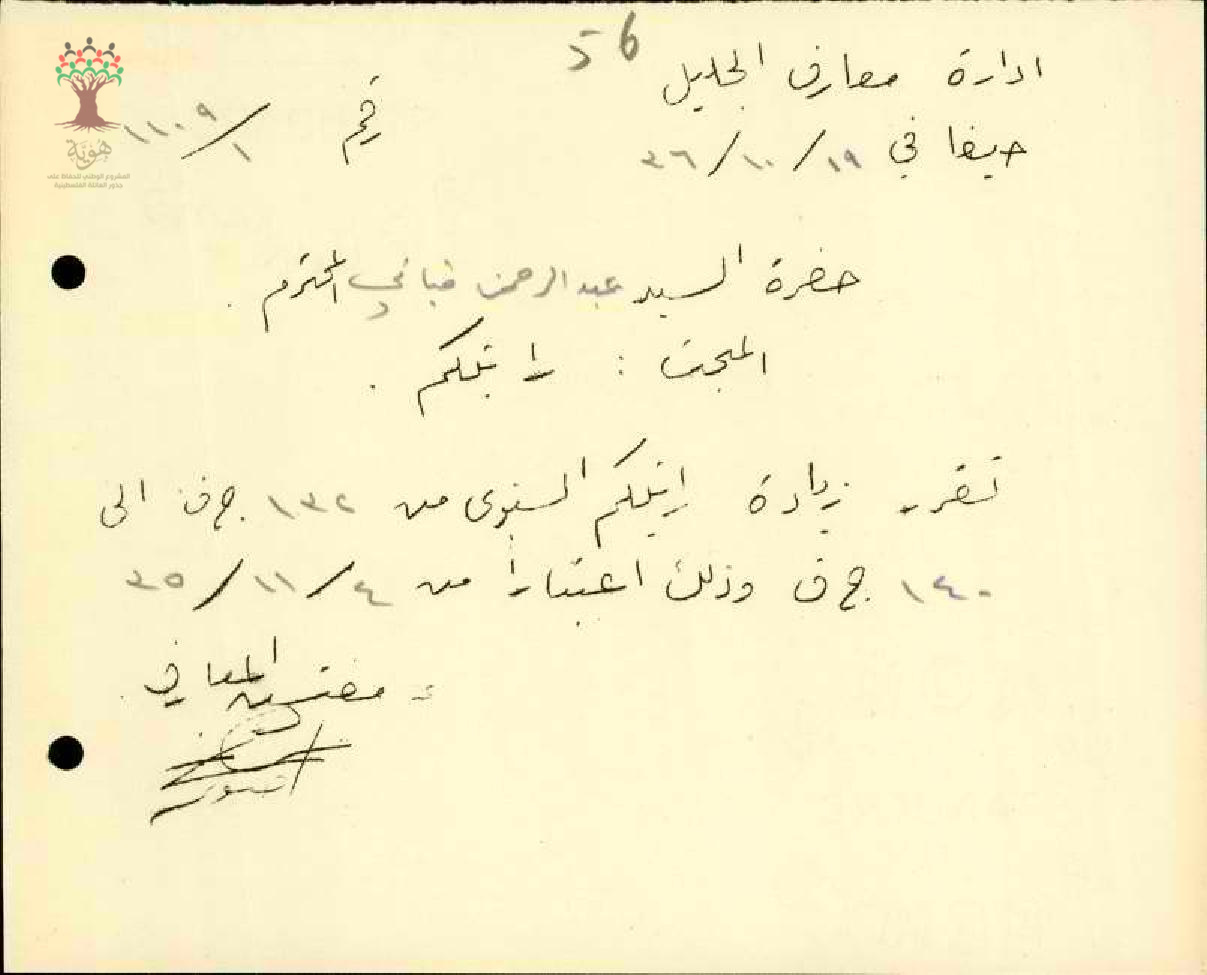 56
ادارة معارف الجليل
حيفا في ١٩/١٠/٣٦
رقم ١١٠٩/١
هوية
المشروع الوطني للحفاظ على
جذور العائلة الفلسطينية
حضرة السيد عبد الرحمن المحترم .
المبحث : راتبكم .
تقرر زيادة راتبكم السنوي من ١٣٢ ج ف الى
١٤٠ ج ف وذلك اعتبارا من ٤/١١/٣٥
مفتش المعارف